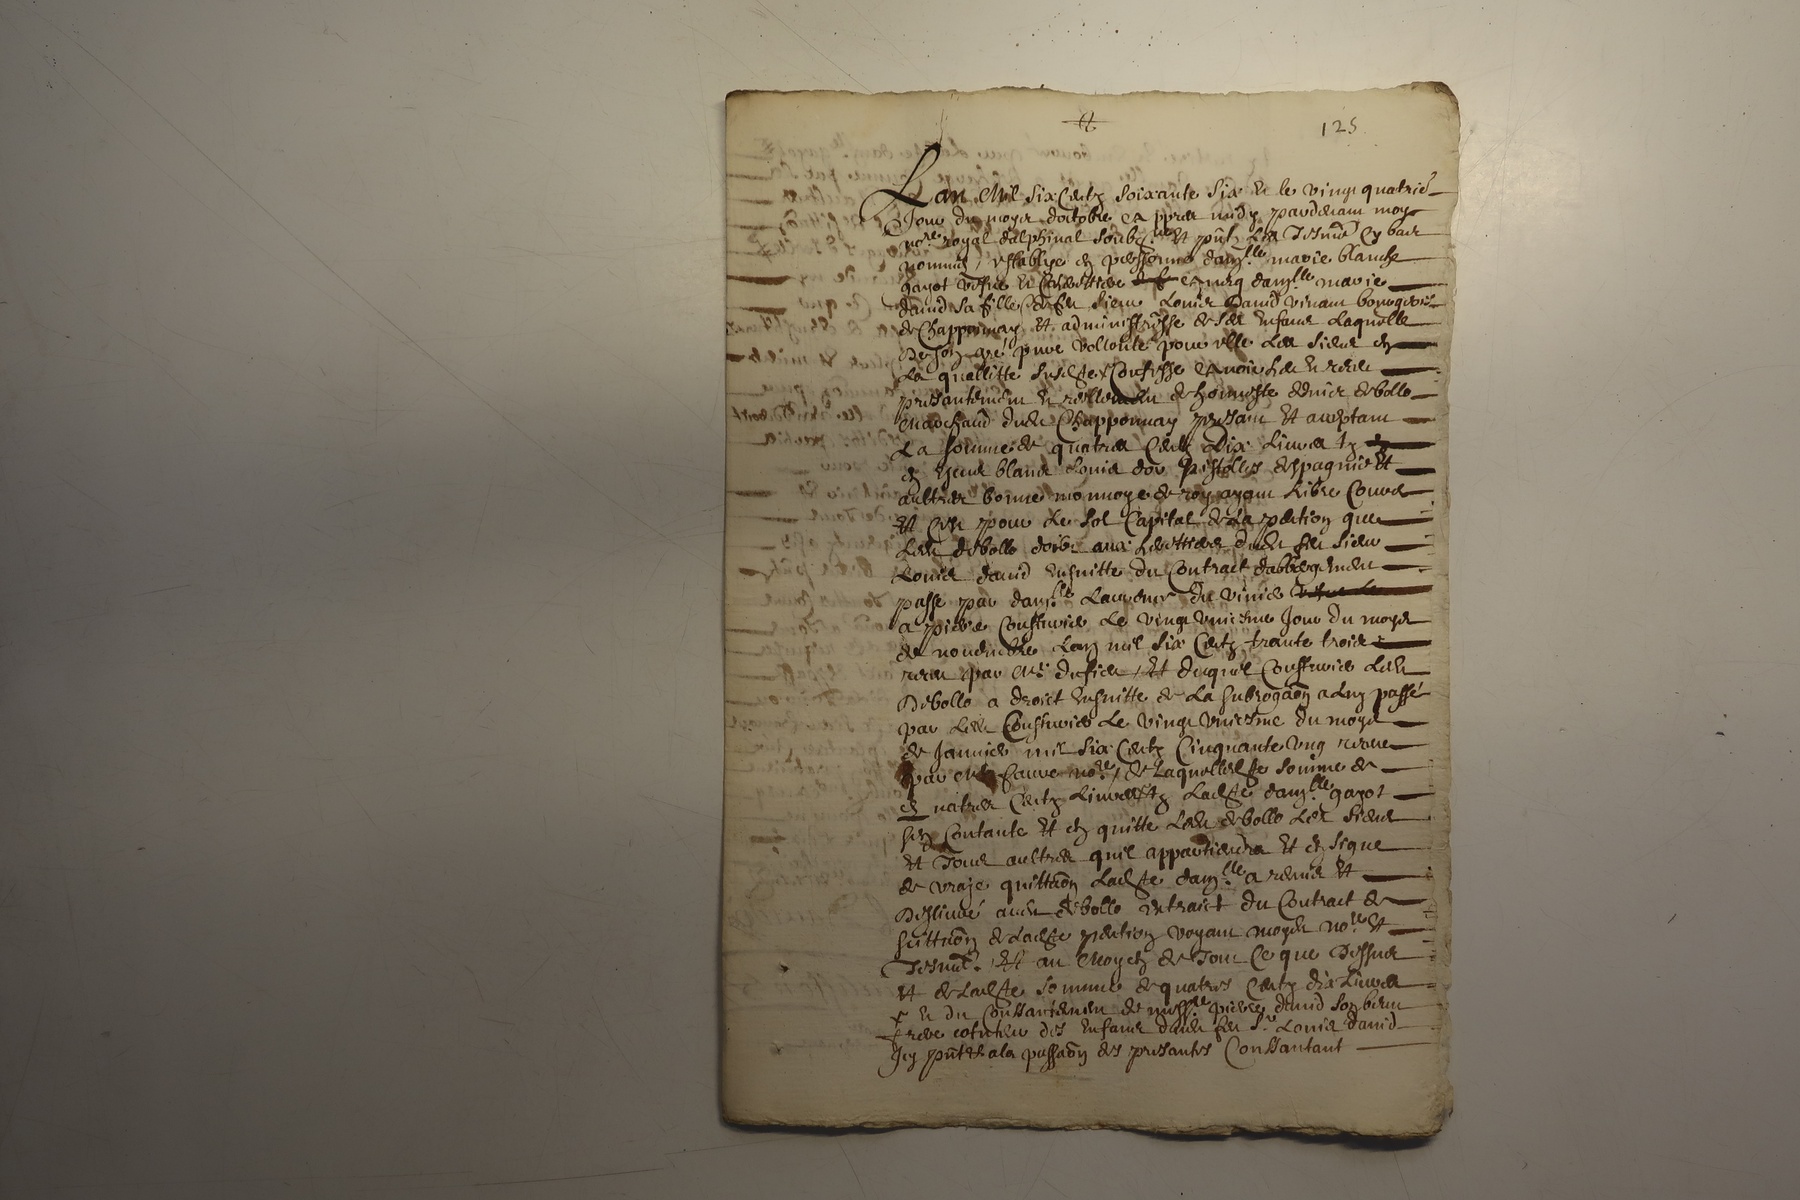 125
Lan Mil Six Centz Soixante Six et le vingt quatrie
Jour du moys doctobre apprez midy pardevant moy
no.re royal dalphinal soubz.ne et pntz les Tesmo cy bas
nommes establye en personne dam.lle marie blanche
gayot vefve et heritiere dam.lle marie
david sa fille feu sieur Louis David vivant bourgeois
de Chapponnay et administresse de ses enfans laquelle
de son gré pure vollonté pour elle les siens en
la quallitte susd confesse avoir heu et receu
presantement et reellement de honneste debollo
Marchand dud Chapponnay presant et acceptant
La somme de quatres Centz dix livres tz
en escus blancs Louis dor Pistolles despagnie et
aultres bonne monnoye de roy ayant libre Cours
et C'est pour le sol Capital de la pention que
Led debollo doibt aux herittiers dud feu sieur
Louis david ensuitte du Contract dalbergement
passé par dam.lle Laurence du vivier
a pierre le vingt uniesme Jour du moys
de novembre Lan mil six Centz trante trois
receu par M.e et duquel Led
Debollo a droict ensuitte de La subrogaon a luy passé
par Led le vingt uniesme du moys
de Janvier mil six Centz Cinquante ung receu
par M.e faure no.re, de laquelle somme de
quatres Centz Livres tz Lade dam.lle gayot
sen Contante et en quitte Led debollo les siens
et Tous aultres quil appartiendra et en signe
de vraye quittaon Lade dam.lle a remis et
Deslivré aud debollo extraict du Contract de
de lade pention voyant moyd no.re et
Tesmo. et au Moyen de Tout Ce que Dessus
et de lade somme de quatres Centz dix Livres
et du Consantement de mess.re pierre david son beau
frere cotuteur des enfans dud feu S.r Louis david
Icy pnt a la passaon des presantes Consantant